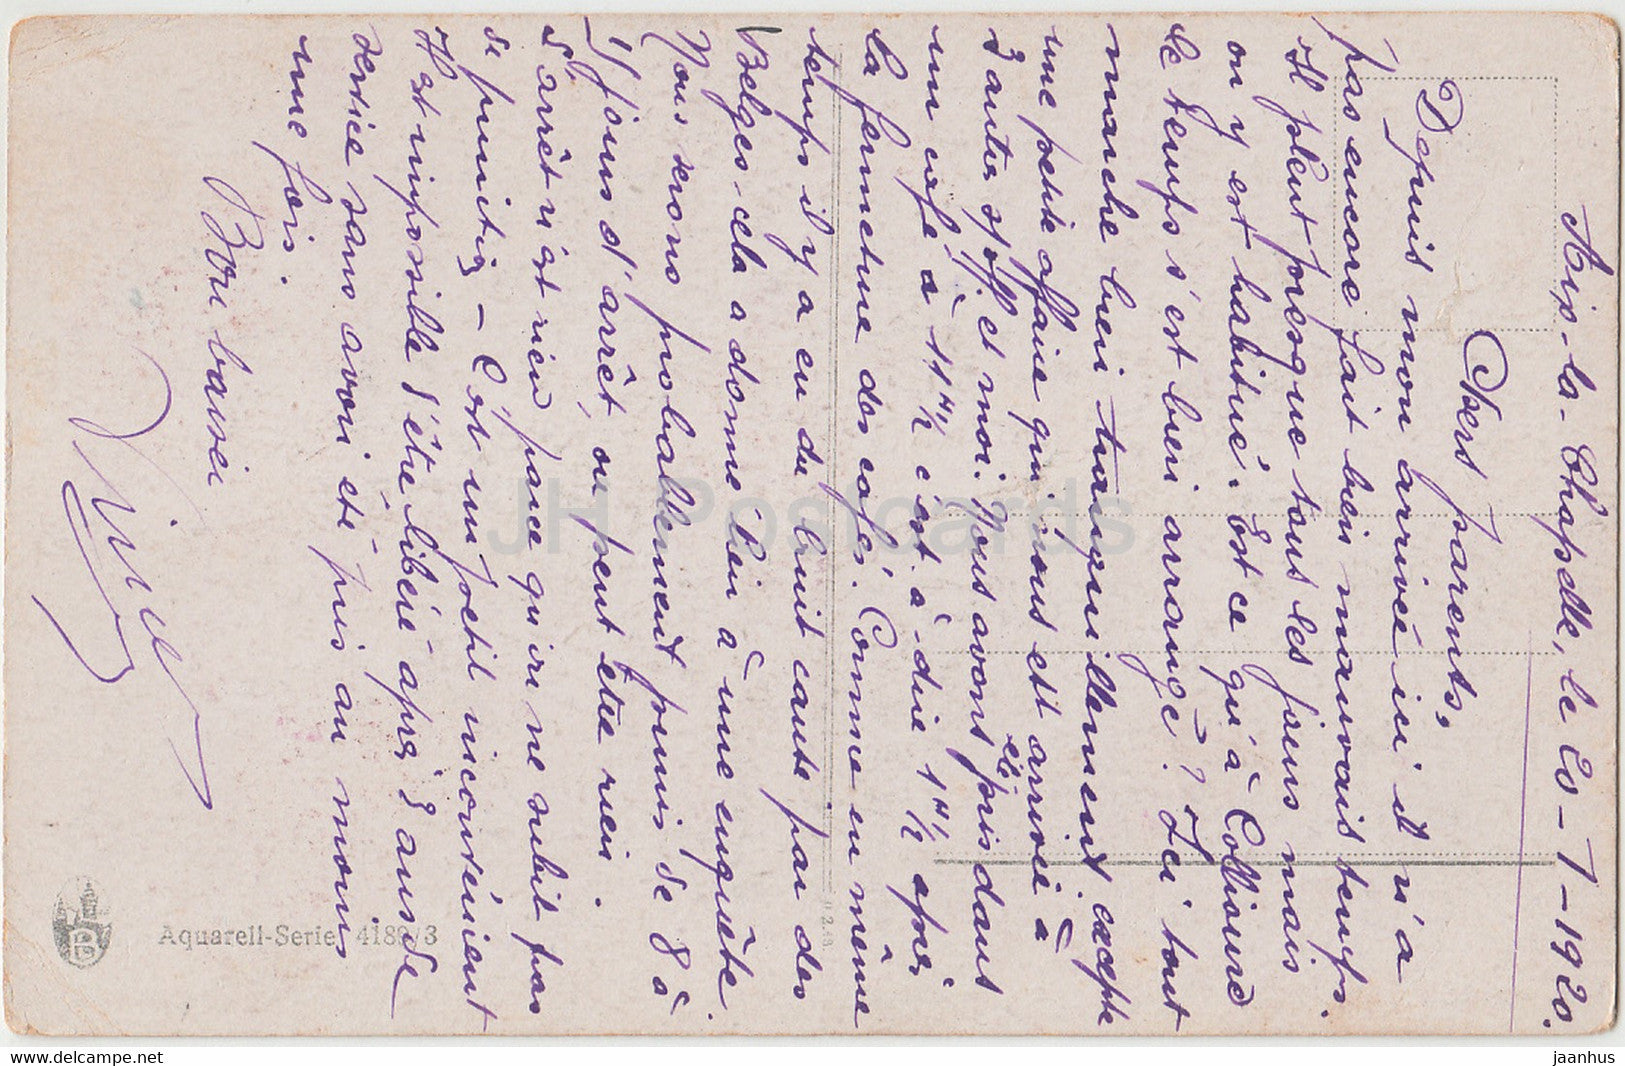 Aix-la-Chapelle, le 20-7-1920.
Chers parents,
Depuis mon arrivée ici il n'a
pas encore fait bien mauvais temps.
Il pleut presque tous les jours mais
on y est habitué. Est ce qu'à Collioure
le temps s'est bien arrangé? Ici tout
marche bien tranquillement excepté
une petite affaire qui nous est arrivée à
3 autres s/off. et moi. Nous avons été pris dans
un café à 11 H 1/2 c'est-à-dire 1 H 1/2 après
la fermeture des cafés. Comme en même
temps il y a eu du bruit cause par des
Belges-cela a donné lieu à une enquête.
Nous serons probablement punis de 8 à
15 jours d'arrêt, ou peut être rien.
d'arrêt n'est rien parce qu'on ne subit pas
de punition - C'est un petit inconvénient
Il est impossible d'être libéré après 3 ans de
service sans avoir été pris au moins
une fois.
Bon baiser
JH Postcards
Aquarell-Serie 4189/3
B
jaanhus